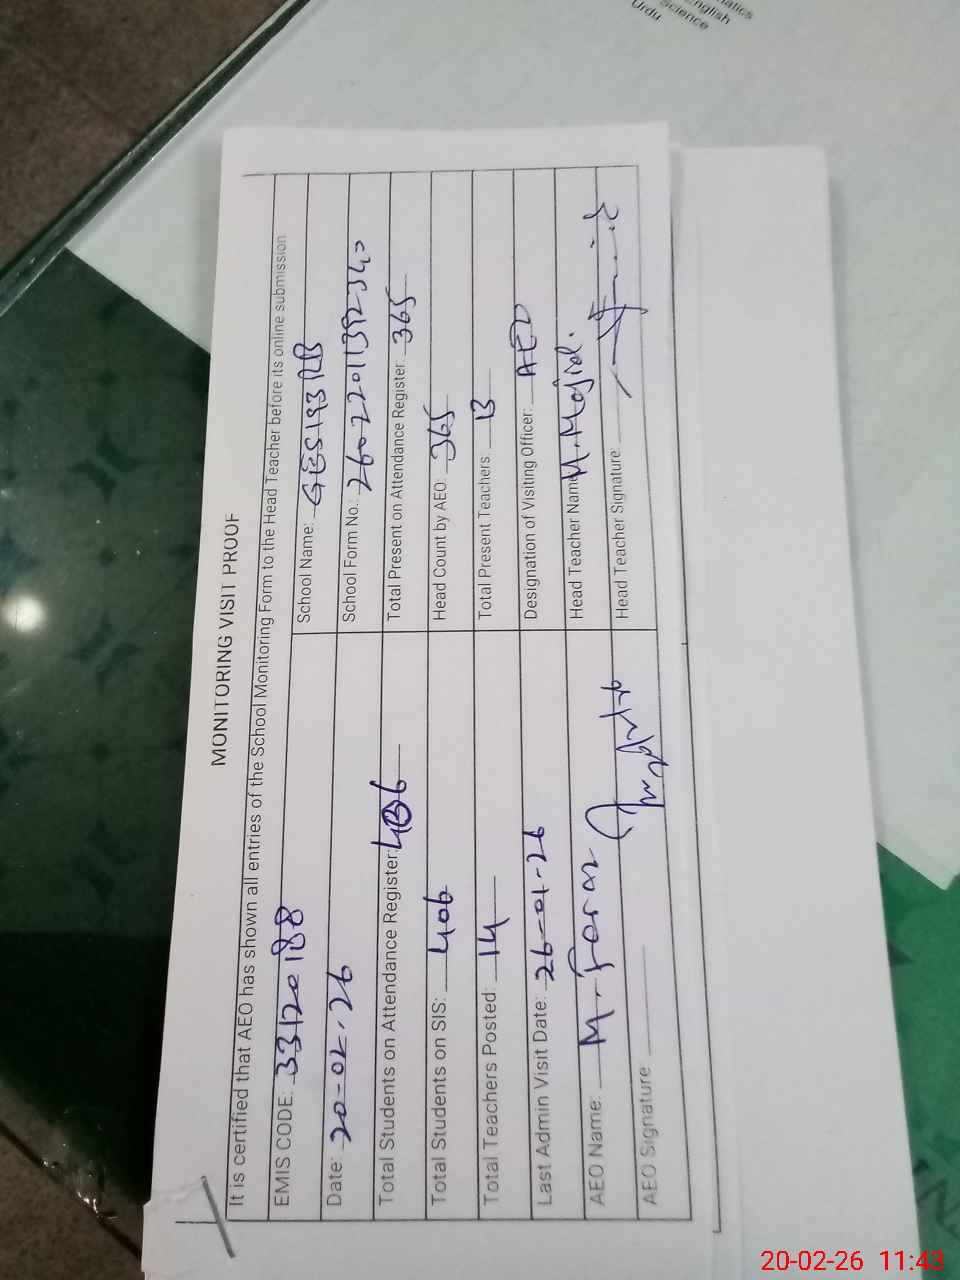 matics
English
Science
Urdu
MONITORING VISIT PROOF
It is certified that AEO has shown all entries of the School Monitoring Form to the Head Teacher before its online submission
EMIS CODE: 33120188 School Name: GES 193 RB
Date: 20-02-26 School Form No.:
Total Students on Attendance Register: 406 Total Present on Attendance Register: 365
Total Students on SIS: 406 Head Count by AEO: 365
Total Teachers Posted: 14 Total Present Teachers 13
Last Admin Visit Date: 26-01-26 Designation of Visiting Officer: AEO
AEO Name: M. Head Teacher Name M. Majid.
AEO Signature Head Teacher Signature
20-02-26 11:43